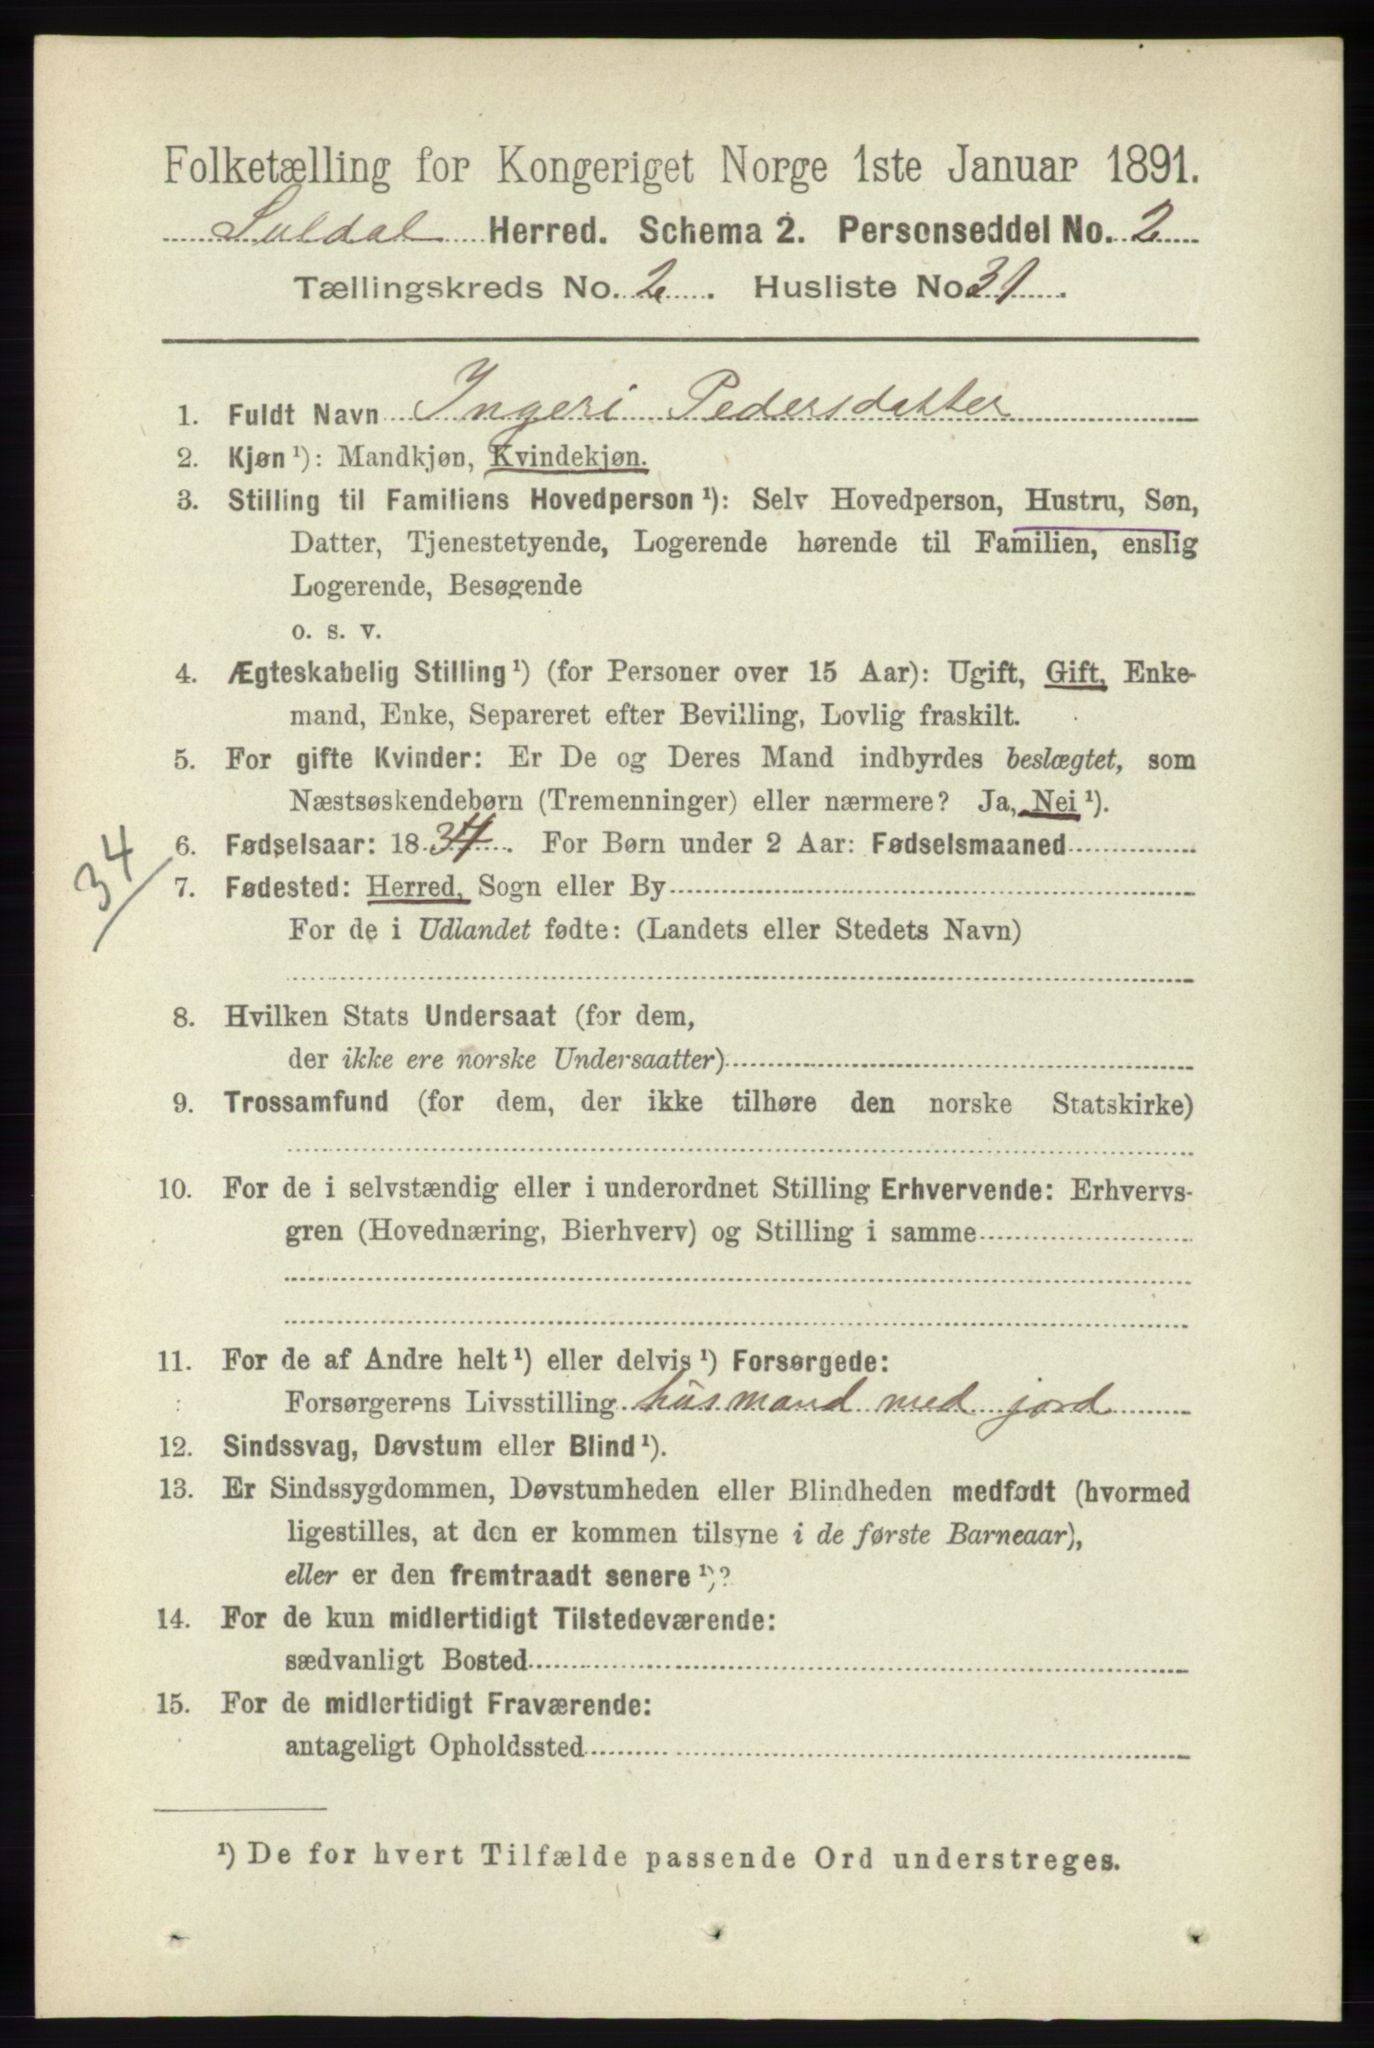 Folketælling for Kongeriget Norge 1ste Januar 1891.
Suldal Herred. Schema 2. Personseddel No. 2
Tællingskreds No. 2. Husliste No 31.
1. Fuldt Navn Ingeri Pedersdatter
2. Kjøn¹): Mandkjøn, Kvindekjøn.
3. Stilling til Familiens Hovedperson¹): Selv Hovedperson, Hustru, Søn,
Datter, Tjenestetyende, Logerende hørende til Familien, enslig
Logerende, Besøgende
o. s. v.
4. Ægteskabelig Stilling¹) (for Personer over 15 Aar): Ugift, Gift, Enke-
mand, Enke, Separeret efter Bevilling, Lovlig fraskilt.
5. For gifte Kvinder: Er De og Deres Mand indbyrdes beslægtet, som
Næstsøskendebørn (Tremenninger) eller nærmere? Ja, Nei¹).
34
6. Fødselsaar: 1834. For Børn under 2 Aar: Fødselsmaaned
7. Fødested: Herred, Sogn eller By
For de i Udlandet fødte: (Landets eller Stedets Navn)
8. Hvilken Stats Undersaat (for dem,
der ikke ere norske Undersaatter)
9. Trossamfund (for dem, der ikke tilhøre den norske Statskirke)
10. For de i selvstændig eller i underordnet Stilling Erhvervende: Erhvervs-
gren (Hovednæring, Bierhverv) og Stilling i samme
11. For de af Andre helt¹) eller delvis¹) Forsørgede:
Forsørgerens Livsstilling husmand med jord
12. Sindssvag, Døvstum eller Blind¹).
13. Er Sindssygdommen, Døvstumheden eller Blindheden medfødt (hvormed
ligestilles, at den er kommen tilsyne i de første Barneaar),
eller er den fremtraadt senere¹)?
14. For de kun midlertidigt Tilstedeværende:
sædvanligt Bosted
15. For de midlertidigt Fraværende:
antageligt Opholdssted
¹) De for hvert Tilfælde passende Ord understreges.